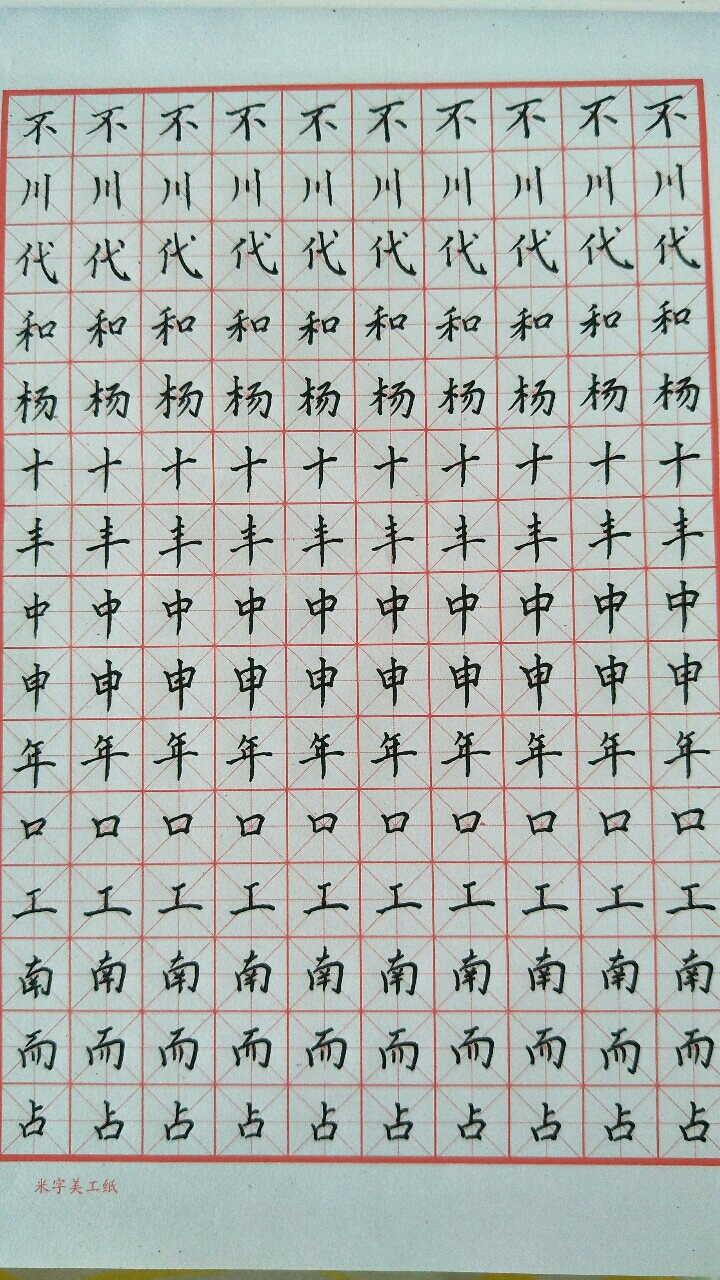 不不不不不不不不不不
川川川川川川川川川川
代代代代代代代代代代
和和和和和和和和和和
杨杨杨杨杨杨杨杨杨杨
十十十十十十十十十十
丰丰丰丰丰丰丰丰丰丰
中中中中中中中中中中
申申申申申申申申申申
年年年年年年年年年年
口口口口口口口口口口
工工工工工工工工工工
南南南南南南南南南南
而而而而而而而而而而
占占占占占占占占占占
米字美工纸